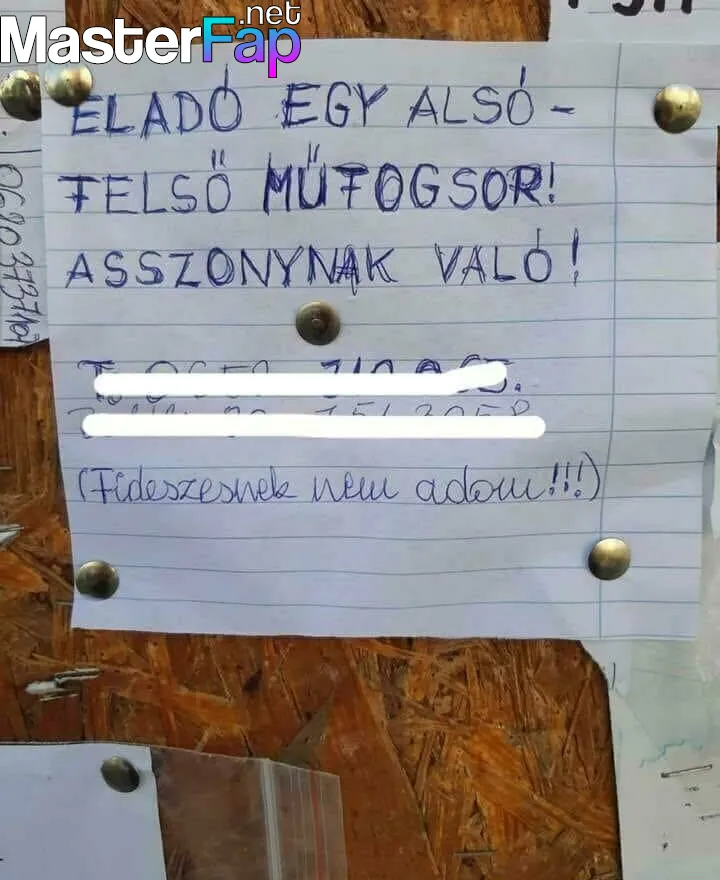 MasterFap.net
ELADÓ EGY ALSÓ-
FELSŐ MŰFOGSOR!
ASSZONYNAK VALÓ!
(Fideszesnek nem adom!!!)